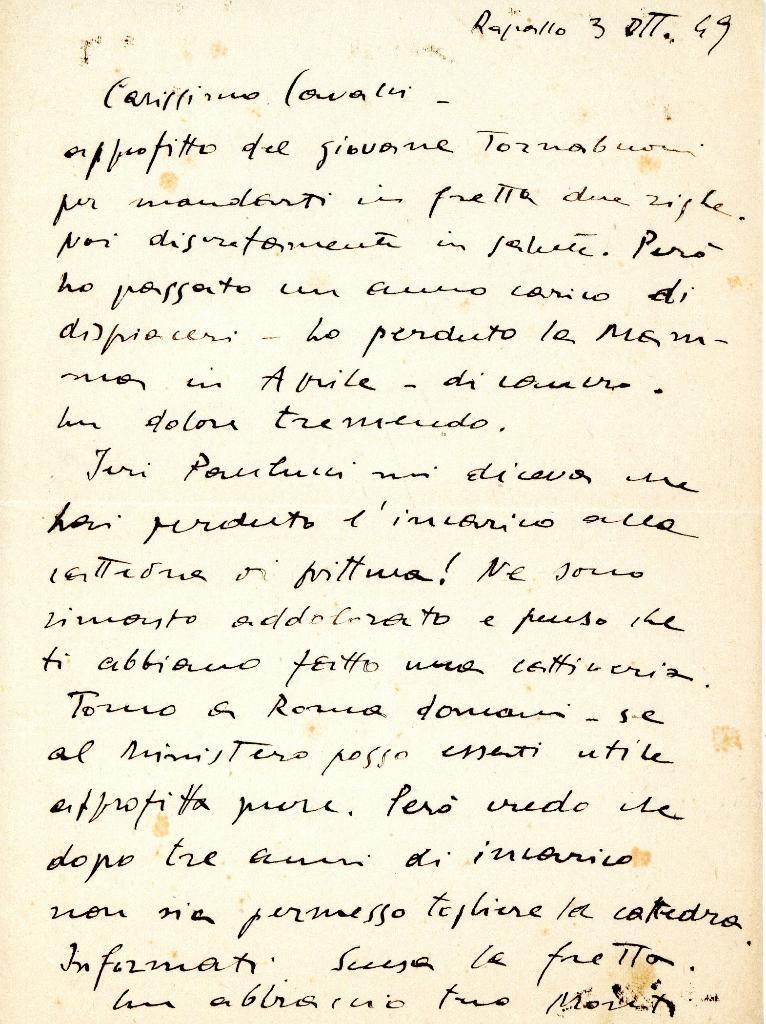 Rapallo 3 Ott. 49
Carissimo Cavalli -
approfitto del giovane Tornabuoni
per mandarti in fretta due righe.
Noi discretamente in salute. Però
ho passato un anno carico di
dispiaceri - ho perduto la Mam-
ma in Aprile - di cancro.
Un dolore tremendo.
Ieri Paulucci mi diceva che
hai perduto l'incarico alla
cattedra di pittura! Ne sono
rimasto addolorato e penso che
ti abbiano fatto una cattiveria.
Torno a Roma domani - se
al Ministero posso esserti utile
approfitta pure. Però credo che
dopo tre anni di incarico
non sia permesso togliere la cattedra.
Informati. Scusa la fretta.
Un abbraccio tuo